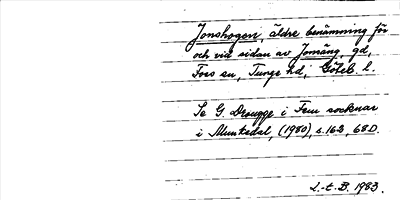 Jonshogen, äldre benämning för
och vid sidan av Jonsäng, gd,
Foss sn, Tunge hd, Göteb. l.
Se G. Drougge i Fem socknar
i Munkedal, (1980), s.163, 680.
L.-t. B. 1983.